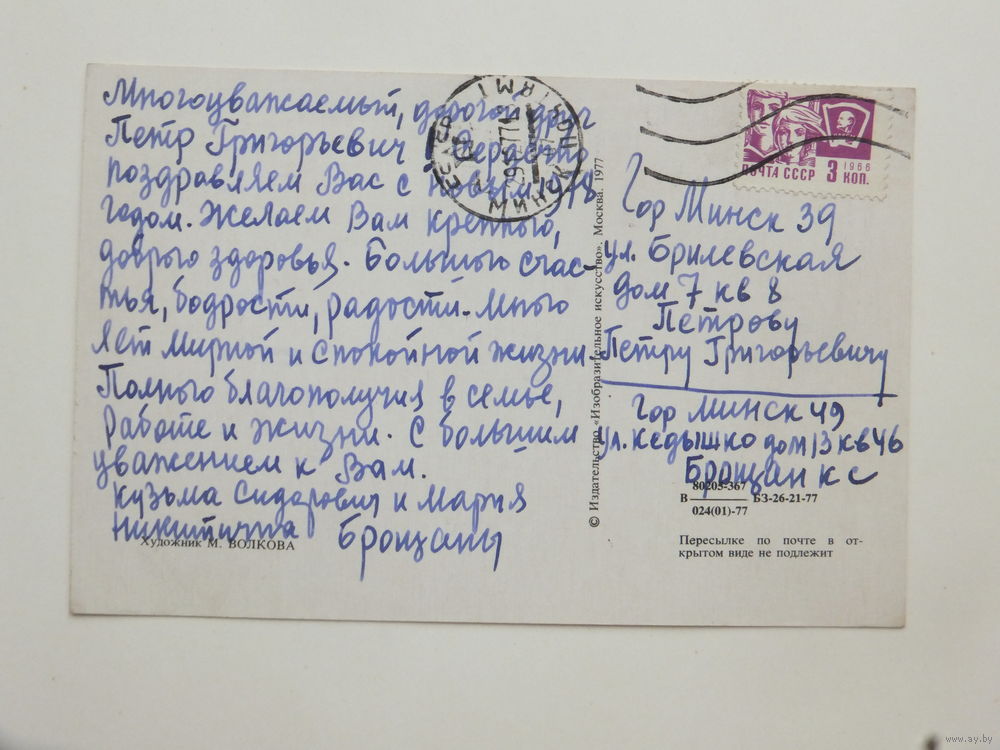 Многоуважаемый, дорогой друг
Петр Григорьевич Сердечно
поздравляем Вас с новым 1978
годом. Желаем Вам крепкого,
доброго здоровья. Большого счас-
тья, бодрости, радости. Много
лет мирной и спокойной жизни.
Полного благополучия в семье,
работе и жизни. С большим
уважением к Вам.
Кузьма Сидорович и Мария
Никитична Бронцаны
Художник М. ВОЛКОВА
© Издательство «Изобразительное искусство». Москва. 1977
ПОЧТА СССР 3 КОП.
1966
Гор Минск 39
ул. Брилевская
дом 7 кв 8
Петрову
Петру Григорьевичу
гор Минск 49
ул. Кедышко дом 13 кв 46
Бронцан К С
80205-367
В ——— БЗ-26-21-77
024(01)-77
Пересылке по почте в от-
крытом виде не подлежит
www.ay.by